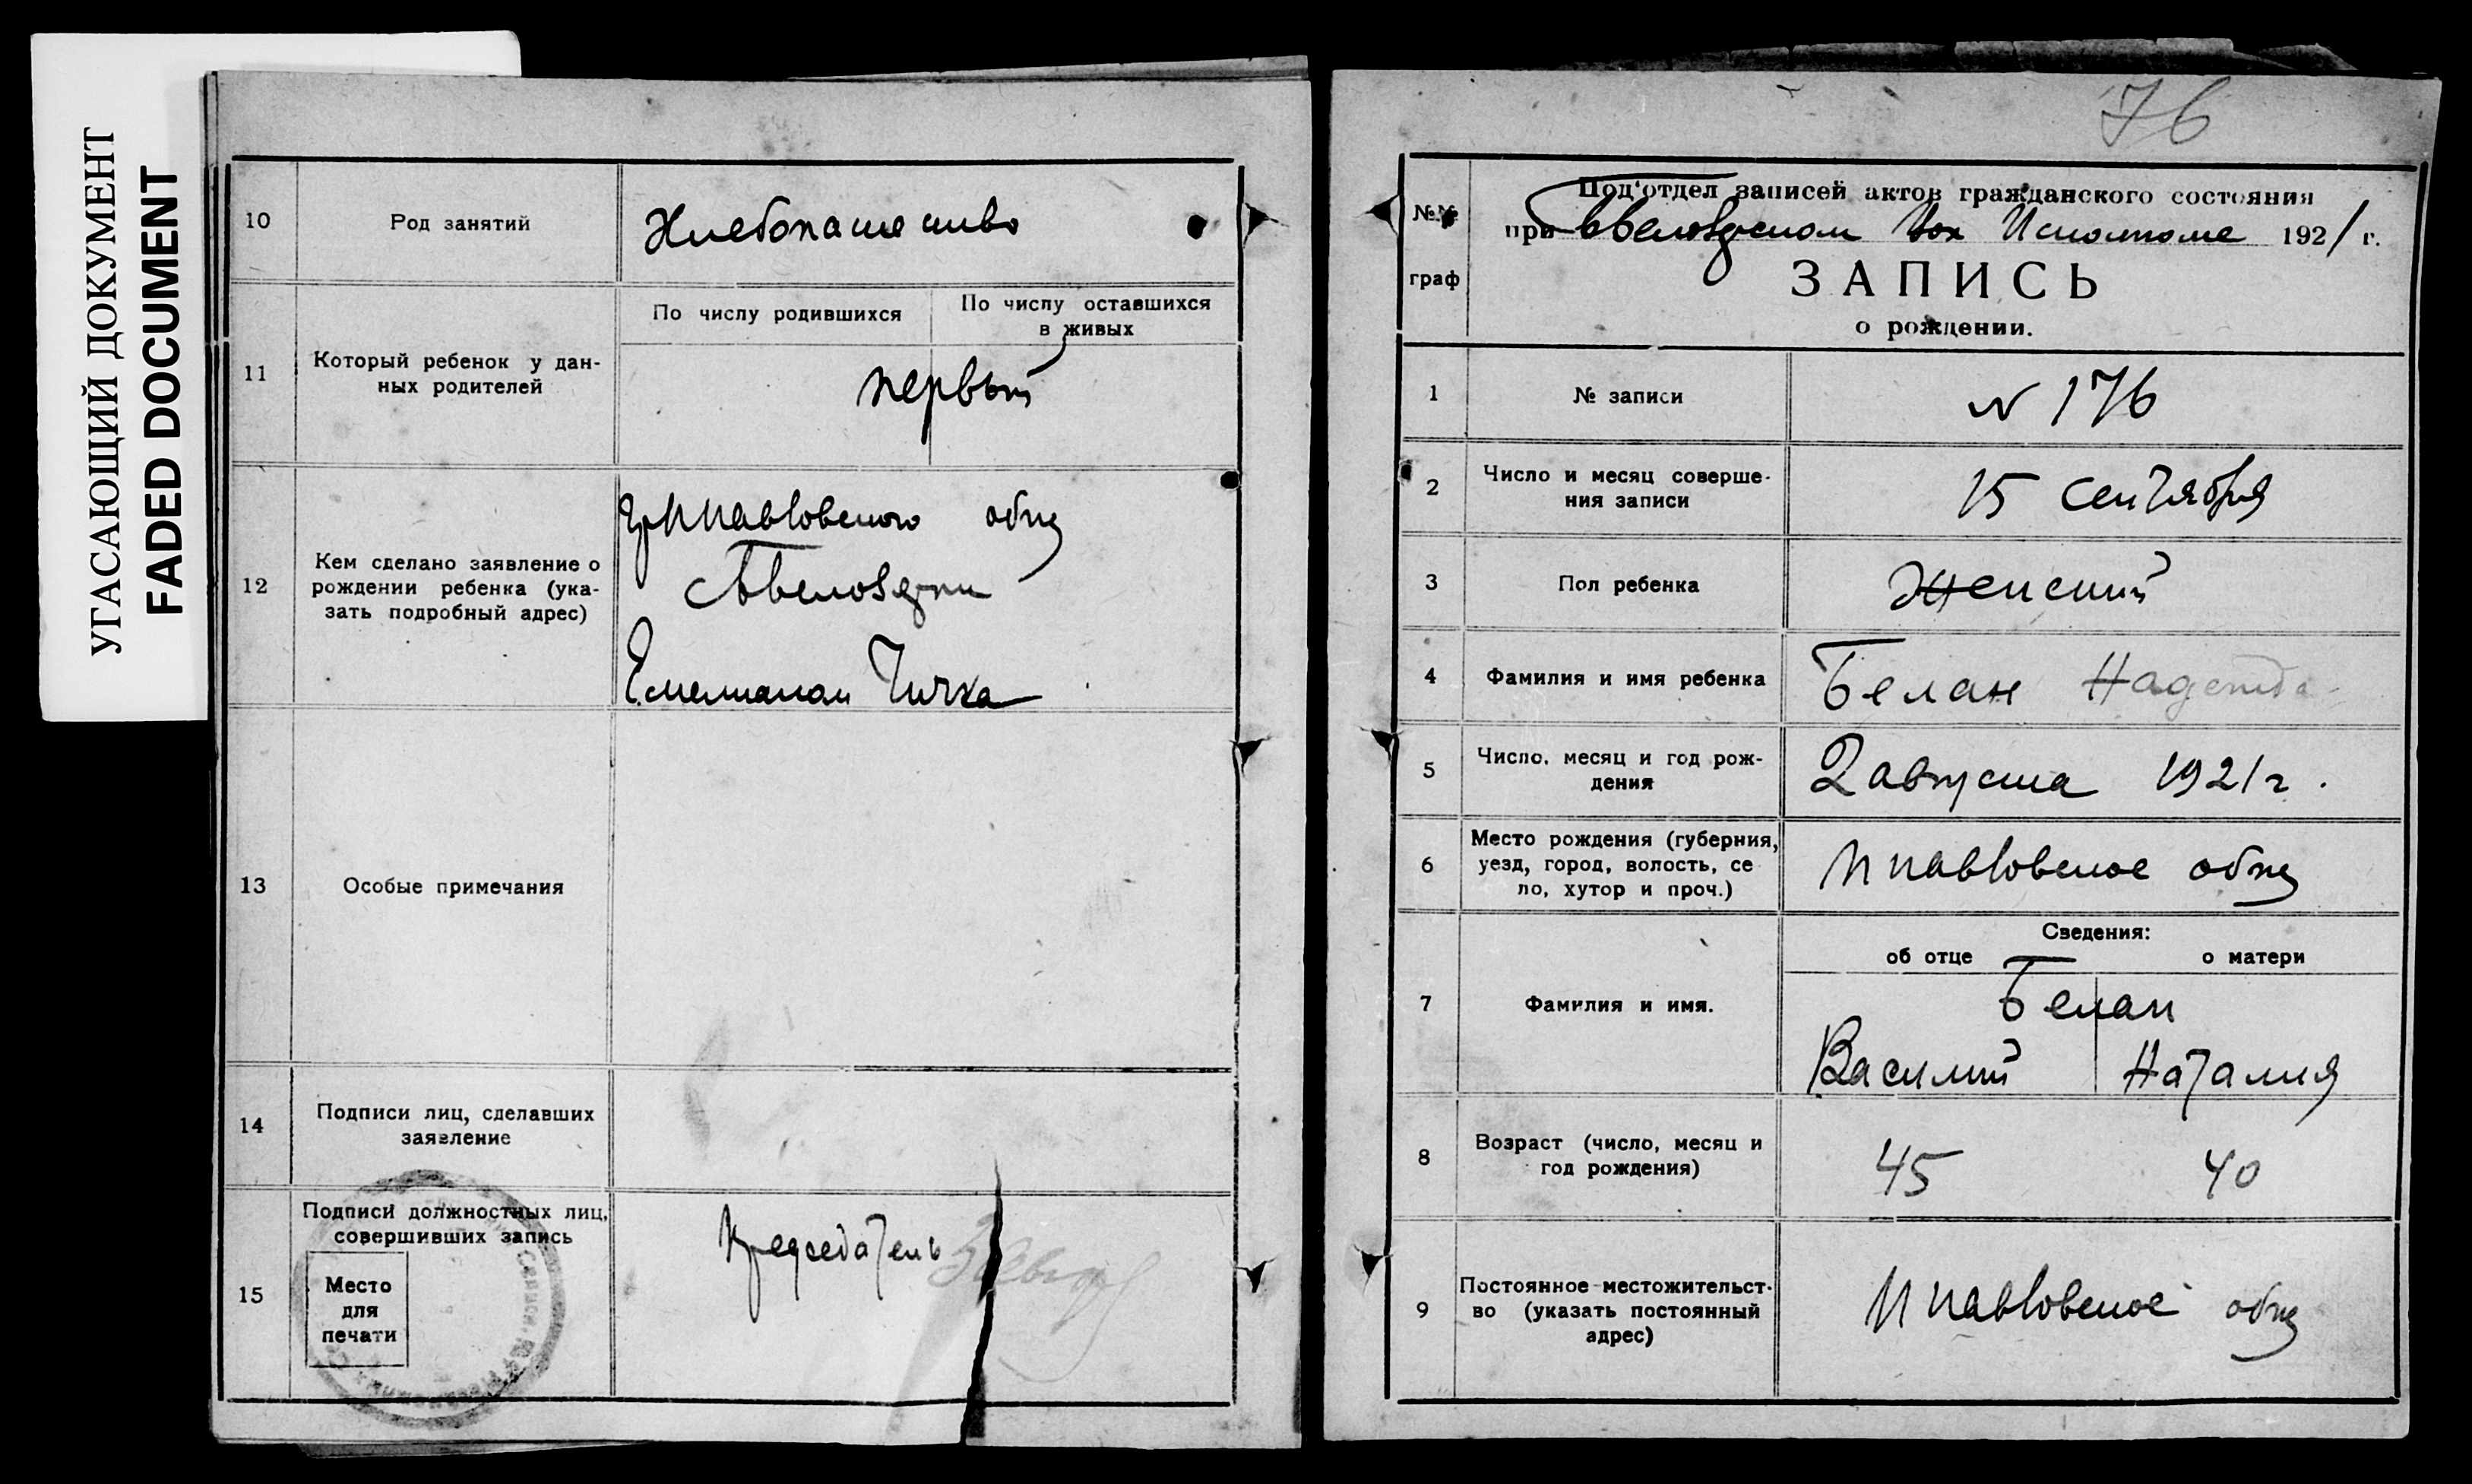 УГАСАЮЩИЙ ДОКУМЕНТ
FADED DOCUMENT
10
Род занятий
Хлебопашество
11
Который ребенок у дан-
ных родителей
По числу родившихся
По числу оставшихся
в живых
первый
12
Кем сделано заявление о
рождении ребенка (ука-
зать подробный адрес)
общ
Чичка
13
Особые примечания
14
Подписи лиц, сделавших
заявление
15
Подписи должностных лиц,
совершивших запись
Место
для
печати
Председатель
76
№№
граф
Под'отдел записей актов гражданского состояния
при Вол Исполкоме 1921 г.
ЗАПИСЬ
о рождении.
1
№ записи
N 176
2
Число и месяц соверше-
ния записи
15 Сентября
3
Пол ребенка
Женский
4
Фамилия и имя ребенка
Белан Надежда
5
Число, месяц и год рож-
дения
2 августа 1921 г.
6
Место рождения (губерния,
уезд, город, волость, се
ло, хутор и проч.)
Ппавловское общ
7
Фамилия и имя.
Сведения:
об отце
о матери
Белан
Василий
Наталия
8
Возраст (число, месяц и
год рождения)
45
40
9
Постоянное местожительст-
во (указать постоянный
адрес)
Ппавловское общ